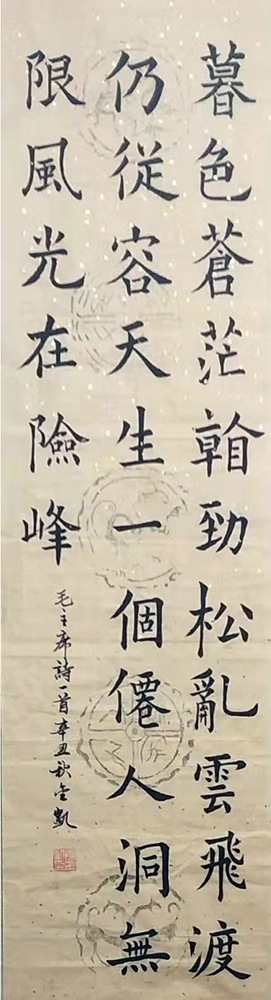 暮色蒼茫看勁松亂雲飛渡
仍從容天生一個僊人洞無
限風光在險峰
毛主席詩一首辛丑秋金凱